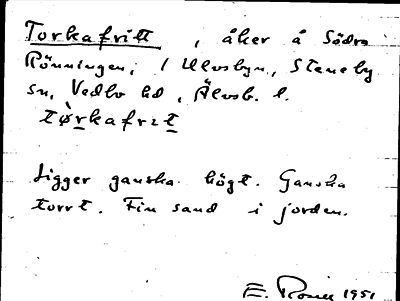 Torkafritt, åker å Södra
Rönningen, i Ulvsbyn, Steneby
sn, Vedbo hd, Älvsb. l.
tø̀rkafrɪt
Ligger ganska högt. Ganska
torrt. Fin sand i jorden.
E. 1951